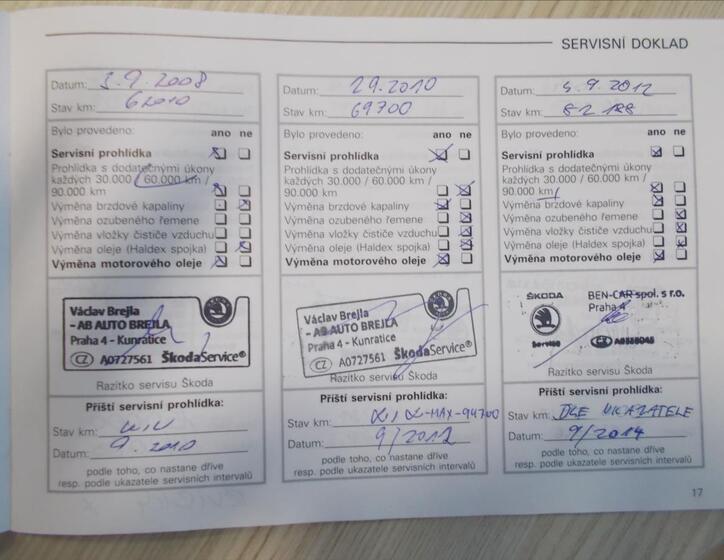 SERVISNÍ DOKLAD
Datum: 3.9.2008
Stav km: 62010
Bylo provedeno: ano ne
Servisní prohlídka
Prohlídka s dodatečnými úkony
každých 30.000 / 60.000 km /
90.000 km
Výměna brzdové kapaliny
Výměna ozubeného řemene
Výměna vložky čističe vzduchu
Výměna oleje (Haldex spojka)
Výměna motorového oleje
Václav Brejla
- AB AUTO BREJLA
Praha 4 - Kunratice
CZ A0727561 ŠkodaService®
Razítko servisu Škoda
Příští servisní prohlídka:
Stav km:
Datum: 9.2010
podle toho, co nastane dříve
resp. podle ukazatele servisních intervalů
Datum: 29.2010
Stav km: 69700
Bylo provedeno: ano ne
Servisní prohlídka
Prohlídka s dodatečnými úkony
každých 30.000 / 60.000 km /
90.000 km
Výměna brzdové kapaliny
Výměna ozubeného řemene
Výměna vložky čističe vzduchu
Výměna oleje (Haldex spojka)
Výměna motorového oleje
Václav Brejla
- AB AUTO BREJLA
Praha 4 - Kunratice
CZ A0727561 ŠkodaService®
Razítko servisu Škoda
Příští servisní prohlídka:
Stav km: MAX-94700
Datum: 9/2012
podle toho, co nastane dříve
resp. podle ukazatele servisních intervalů
Datum: 5.9.2012
Stav km: 82 188
Bylo provedeno: ano ne
Servisní prohlídka
Prohlídka s dodatečnými úkony
každých 30.000 / 60.000 km /
90.000 km
Výměna brzdové kapaliny
Výměna ozubeného řemene
Výměna vložky čističe vzduchu
Výměna oleje (Haldex spojka)
Výměna motorového oleje
ŠKODA BEN-CAR spol. s r.o.
Praha 4
Service CZ
Razítko servisu Škoda
Příští servisní prohlídka:
Stav km: DLE UKAZATELE
Datum: 9/2014
podle toho, co nastane dříve
resp. podle ukazatele servisních intervalů
17